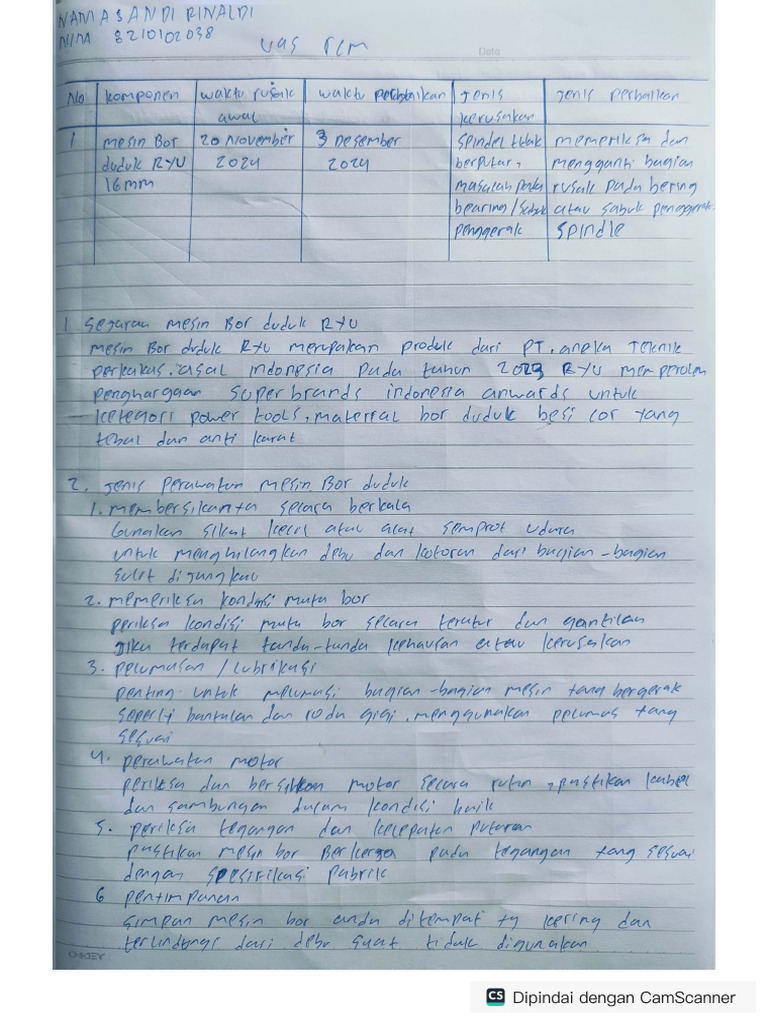 NAMA SANDI RINALDI
NIM 8210102038
UAS TCM
Date
No komponen waktu rusak awal waktu perbaikan Jenis kerusakan Jenis perbaikan
1 mesin Bor duduk RYU 16 mm 20 November 2024 3 Desember 2024 spindel tidak berputar, masalah pada bearing/sabuk penggerak memeriksa dan mengganti bagian rusak pada bering atau sabuk penggerak spindle
1 Sejarah mesin Bor duduk RYU
mesin Bor duduk RYU merupakan produk dari PT. aneka Teknik
perkakas, asal indonesia pada tahun 2023 RYU memperoleh
penghargaan Superbrands indonesia anwards untuk
kategori power tools, material bor duduk besi cor yang
tebal dan anti karat
2. Jenis perawatan mesin Bor duduk
1. membersikanya secara berkala
Gunakan sikat kecil atau alat semprot udara
untuk menghilangkan debu dan kotoran dari bagian-bagian
sulit dijangkau
2. memeriksa kondisi mata bor
periksa kondisi mata bor secara teratur dan gantilah
jika terdapat tanda-tanda kehausan atau kerusakan
3. pelumasan / lubrikasi
penting untuk melumasi bagian-bagian mesin yang bergerak
seperti bantalan dan roda gigi, menggunakan pelumas yang
sesuai
4. perawatan motor
periksa dan bersihkan motor secara rutin, pastikan kabel
dan sambungan dalam kondisi baik
5. periksa tegangan dan kecepatan putaran
pastikan mesin bor Berkerja pada tegangan yang sesuai
dengan spesifikasi pabrik
6 penyimpanan
simpan mesin bor anda ditempat yg kering dan
terlindungi dari debu saat tidak digunakan
CS Dipindai dengan CamScanner